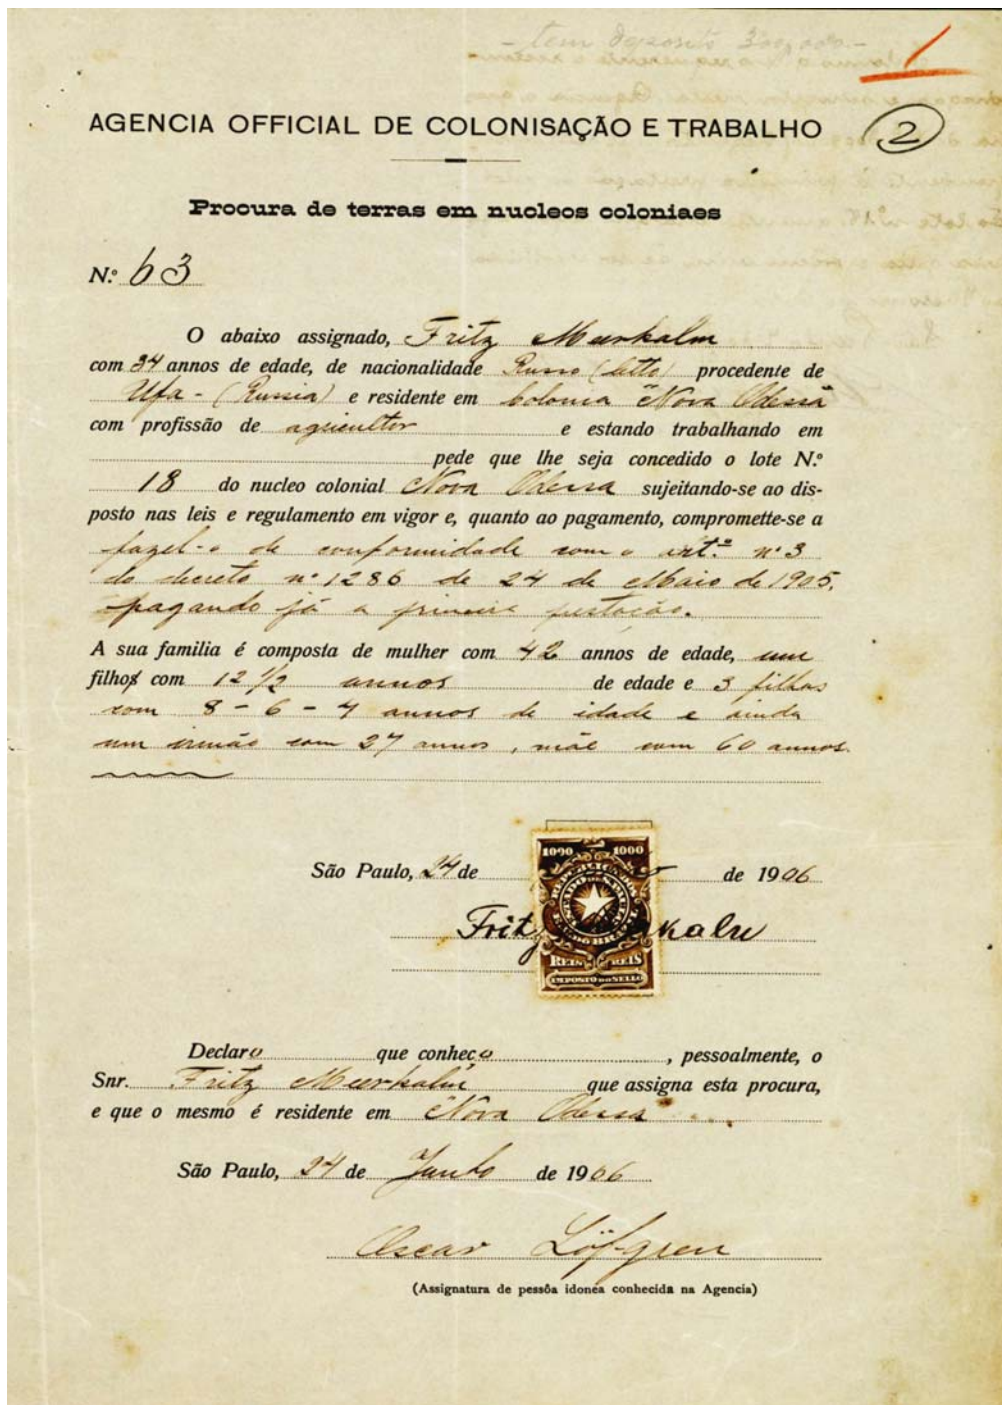 - tem deposito 300,000 -
1
AGENCIA OFFICIAL DE COLONISAÇÃO E TRABALHO
2
Procura de terras em nucleos coloniaes
N.º 63
O abaixo assignado, Fritz Meerkalm
com 34 annos de edade, de nacionalidade Russo (letto) procedente de
Ufa - (Russia) e residente em Colonia "Nova Odessa"
com profissão de agricultor e estando trabalhando em
pede que lhe seja concedido o lote N.º
18 do nucleo colonial Nova Odessa sujeitando-se ao dis-
posto nas leis e regulamento em vigor e, quanto ao pagamento, compromette-se a
fazel-o de conformidade com o art.º nº 3
do decreto nº 1286 de 24 de Maio de 1905,
pagando já a primeira prestação.
A sua familia é composta de mulher com 42 annos de edade, um
filhos com 12 1/2 annos de edade e 3 filhas
com 8 - 6 - 4 annos de idade e ainda
um irmão com 27 annos, mãe com 60 annos.
1000 1000
REIS REIS
IMPOSTO DO SELLO
São Paulo, 24 de de 1906
Fritz
Declaro que conheço , pessoalmente, o
Snr. Fritz Meerkalm que assigna esta procura,
e que o mesmo é residente em "Nova Odessa"
São Paulo, 24 de Junho de 1906
Oscar Löfgren
(Assignatura de pessôa idonea conhecida na Agencia)